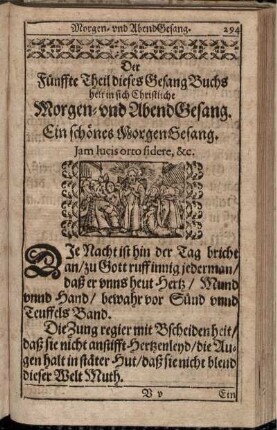 Morgen- vnd AbendGesang. 294
Der
Fünffte Theil dieses Gesang Buchs
helt in sich Christliche
Morgen- vnd AbendGesang.
Ein schönes MorgenGesang.
Jam lucis orto sidere, &c.
DIe Nacht ist hin der Tag bricht
an/ zu Gott ruff innig jederman/
daß er vnns heut Hertz/ Mund
vnnd Hand/ bewahr vor Sünd vnnd
Teuffels Band.
Die Zung regier mit Bscheidenheit/
daß sie nicht anstifft Hertzenleyd/ die Au-
gen halt in stäter Hut/ daß sie nicht blend
dieser Welt Muth.
V v Ein